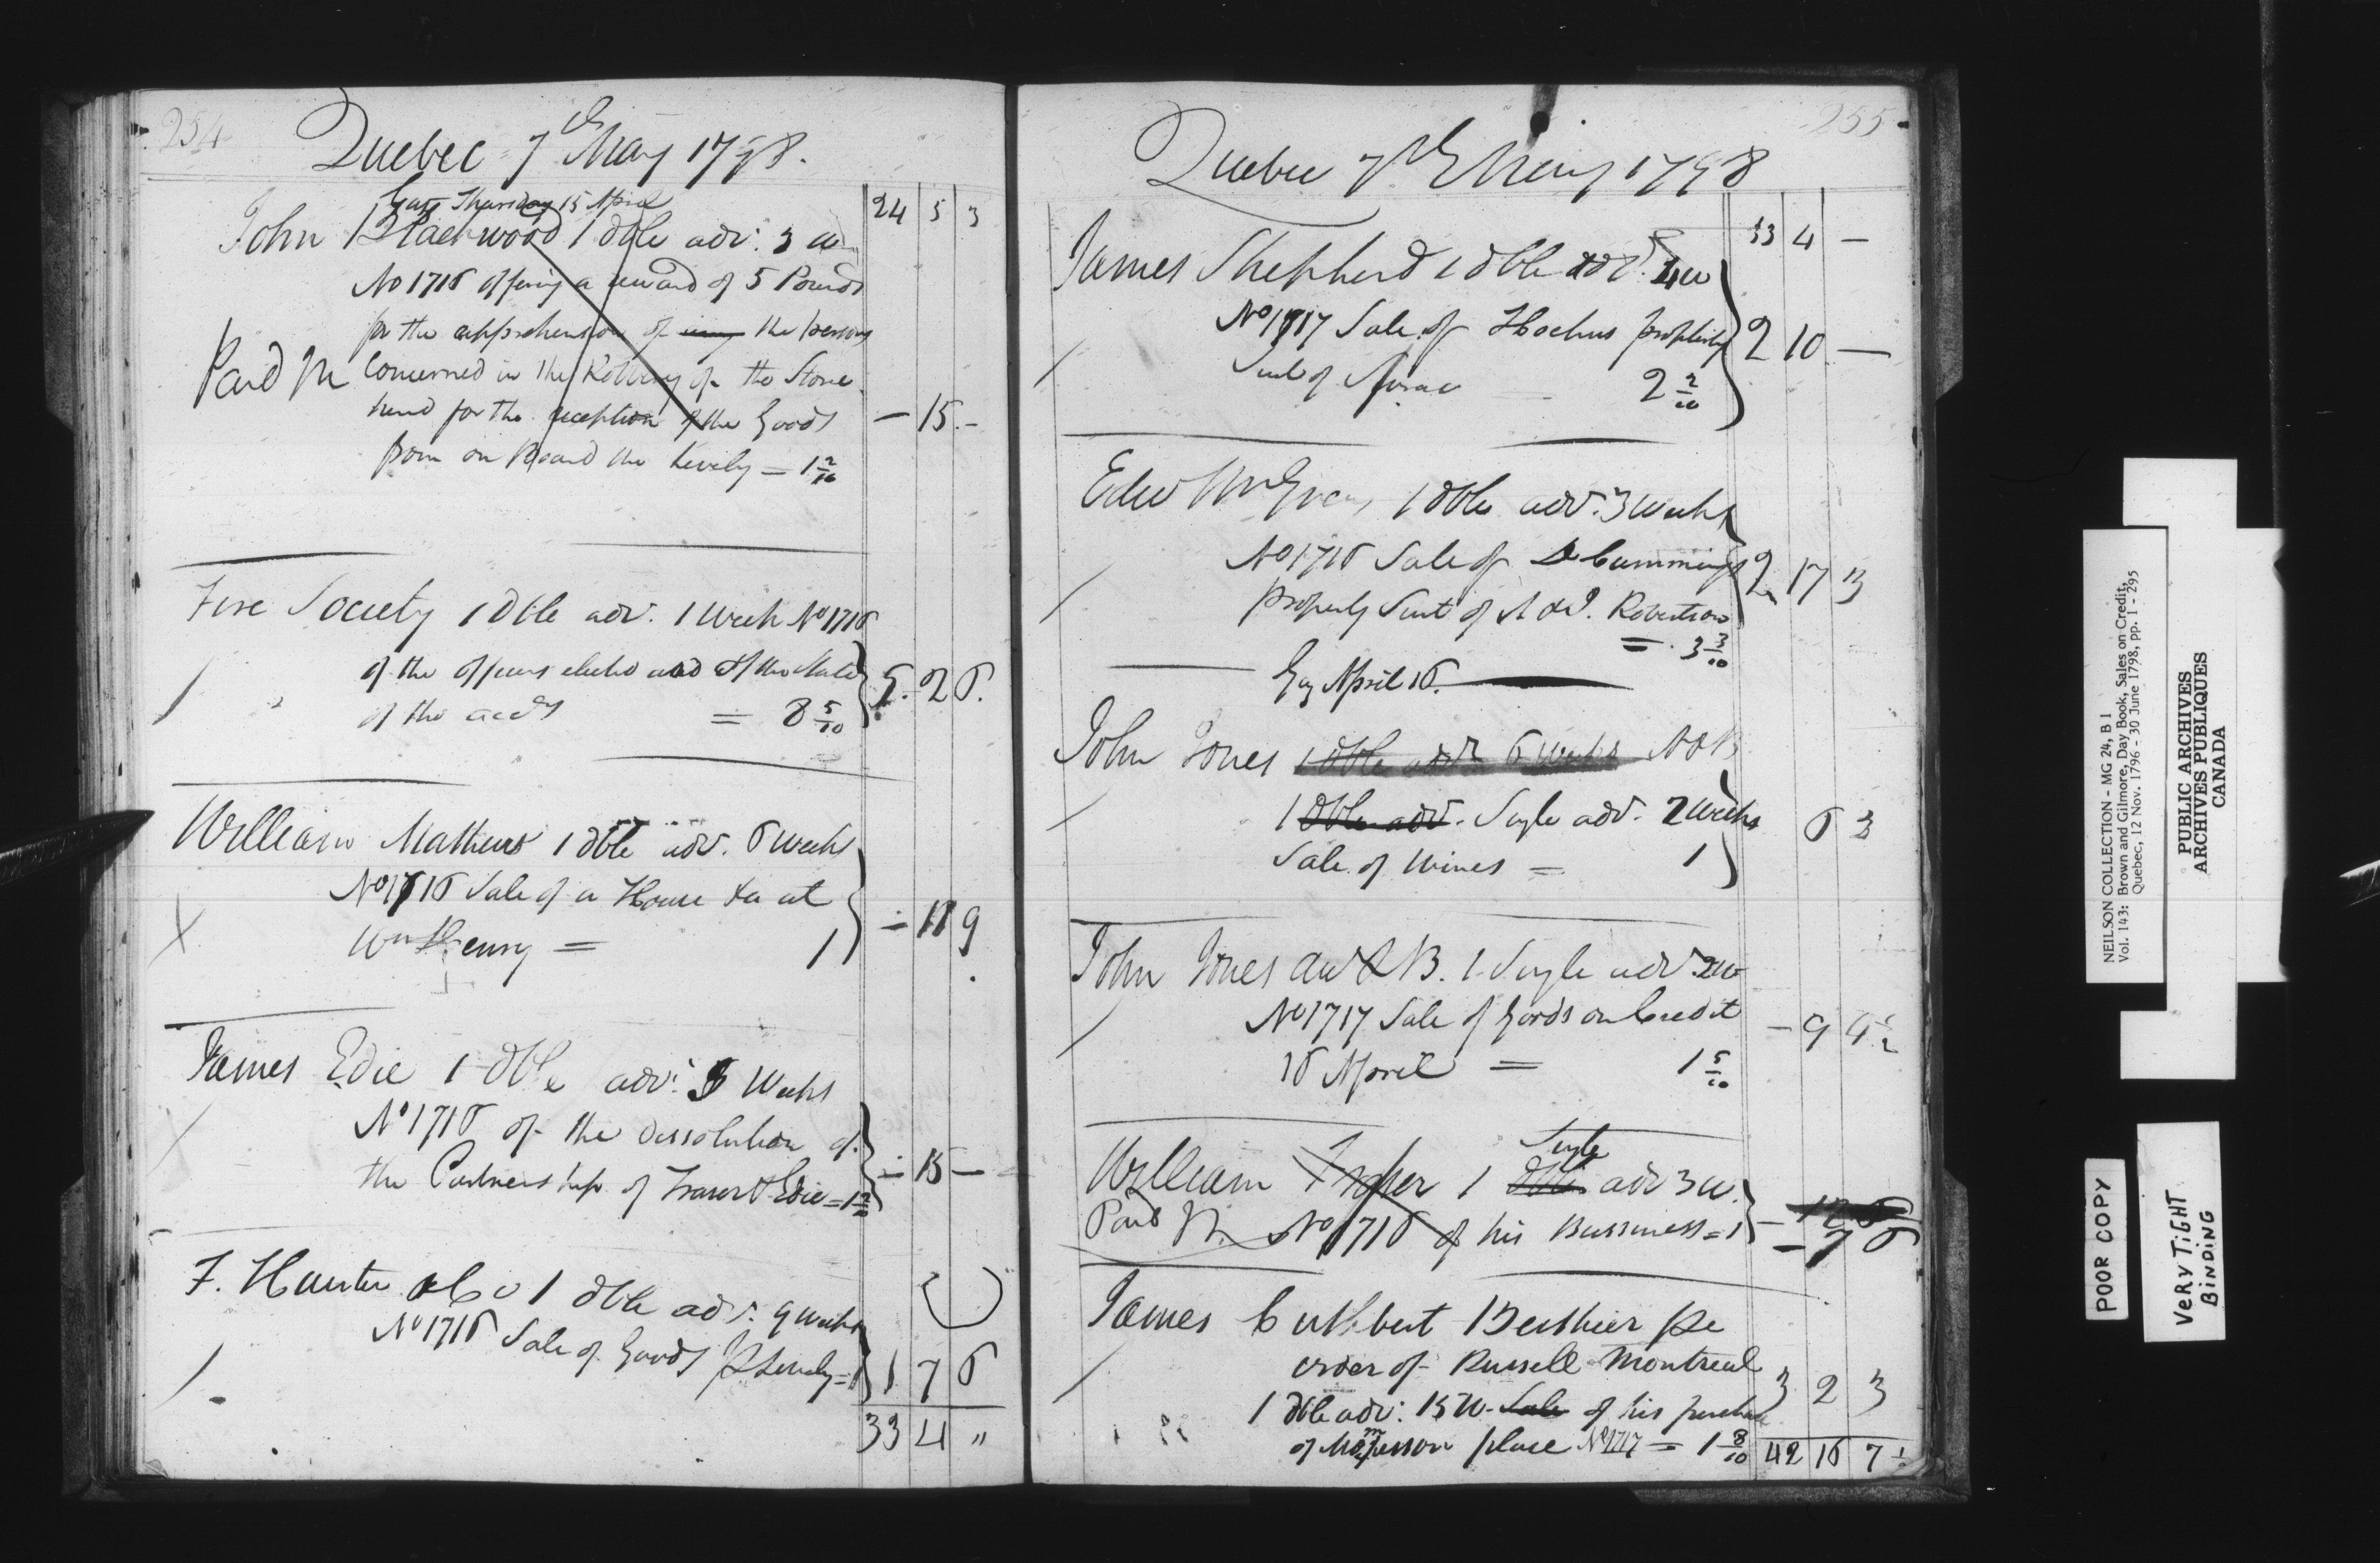 254
Quebec 7th May 1798.
24 5 3
Gaz Thursday 15 April
John Blackwood 1 dble adv. 3 w
No 1716 offering a reward of 5 Pounds
for the apprehension of any the persons
Paid concerned in the Robbery of the Store
hired for the reception of the Goods — 15 -
from on Board the Lively = 1 2/10
Fire Society 1 Dble adv. 1 Week No 1716
of the officers elected and of the State
of the accts = 8 5/10 5. 2 6.
William Mathews 1 dble adv. 6 weeks
No 1716 Sale of a House &a at
Wm Henry = 1 — 18 9
James Edie 1 dble adv. 3 Weeks
No 1716 of the dissolution of
the Partnership of Fraser & Edie = 1 2/10 — 15 —
F. Hunter & Co 1 dble adv. 9 weeks
No 1716 Sale of Goods p Lively = 1 1 7 6
33 4 "
255
Quebec 7th May 1798
33 4 —
James Shepherd 1 dble adv. 4w
No 1717 Sale of property
Suit of 2 2/10 2 10 —
Edw 1 dble adv. 3 Weeks
No 1716 Sale of Cummings
property Suit of A & J. Robertson 2 17 3
= 3 3/10
Gaz April 16.
John Jones 1 dble adv 6 weeks A & B
1 dble adv. Single adv. 2 weeks 6 3
Sale of Wines = 1
John Jones au & B. 1 Single adv 2w
No 1717 Sale of Goods on Credit — 9 4 1/2
16 April = 1 5/10
Single
William 1 dble adv 3 w.
Paid No 1716 of his Bussiness = 1 — 7 6
James Cuthbert Berthier pr
order of Russell Montreal
1 dble adv: 15 W. Sale of his purchase 3 2 3
of place No 1717 = 1 8/10
42 16 7 1/2
NEILSON COLLECTION - MG 24, B 1
Vol. 143: Brown and Gilmore, Day Book, Sales on Credit,
Quebec, 12 Nov. 1796 - 30 June 1798, pp. 1 - 295
PUBLIC ARCHIVES
ARCHIVES PUBLIQUES
CANADA
POOR COPY
VERY TIGHT
BINDING